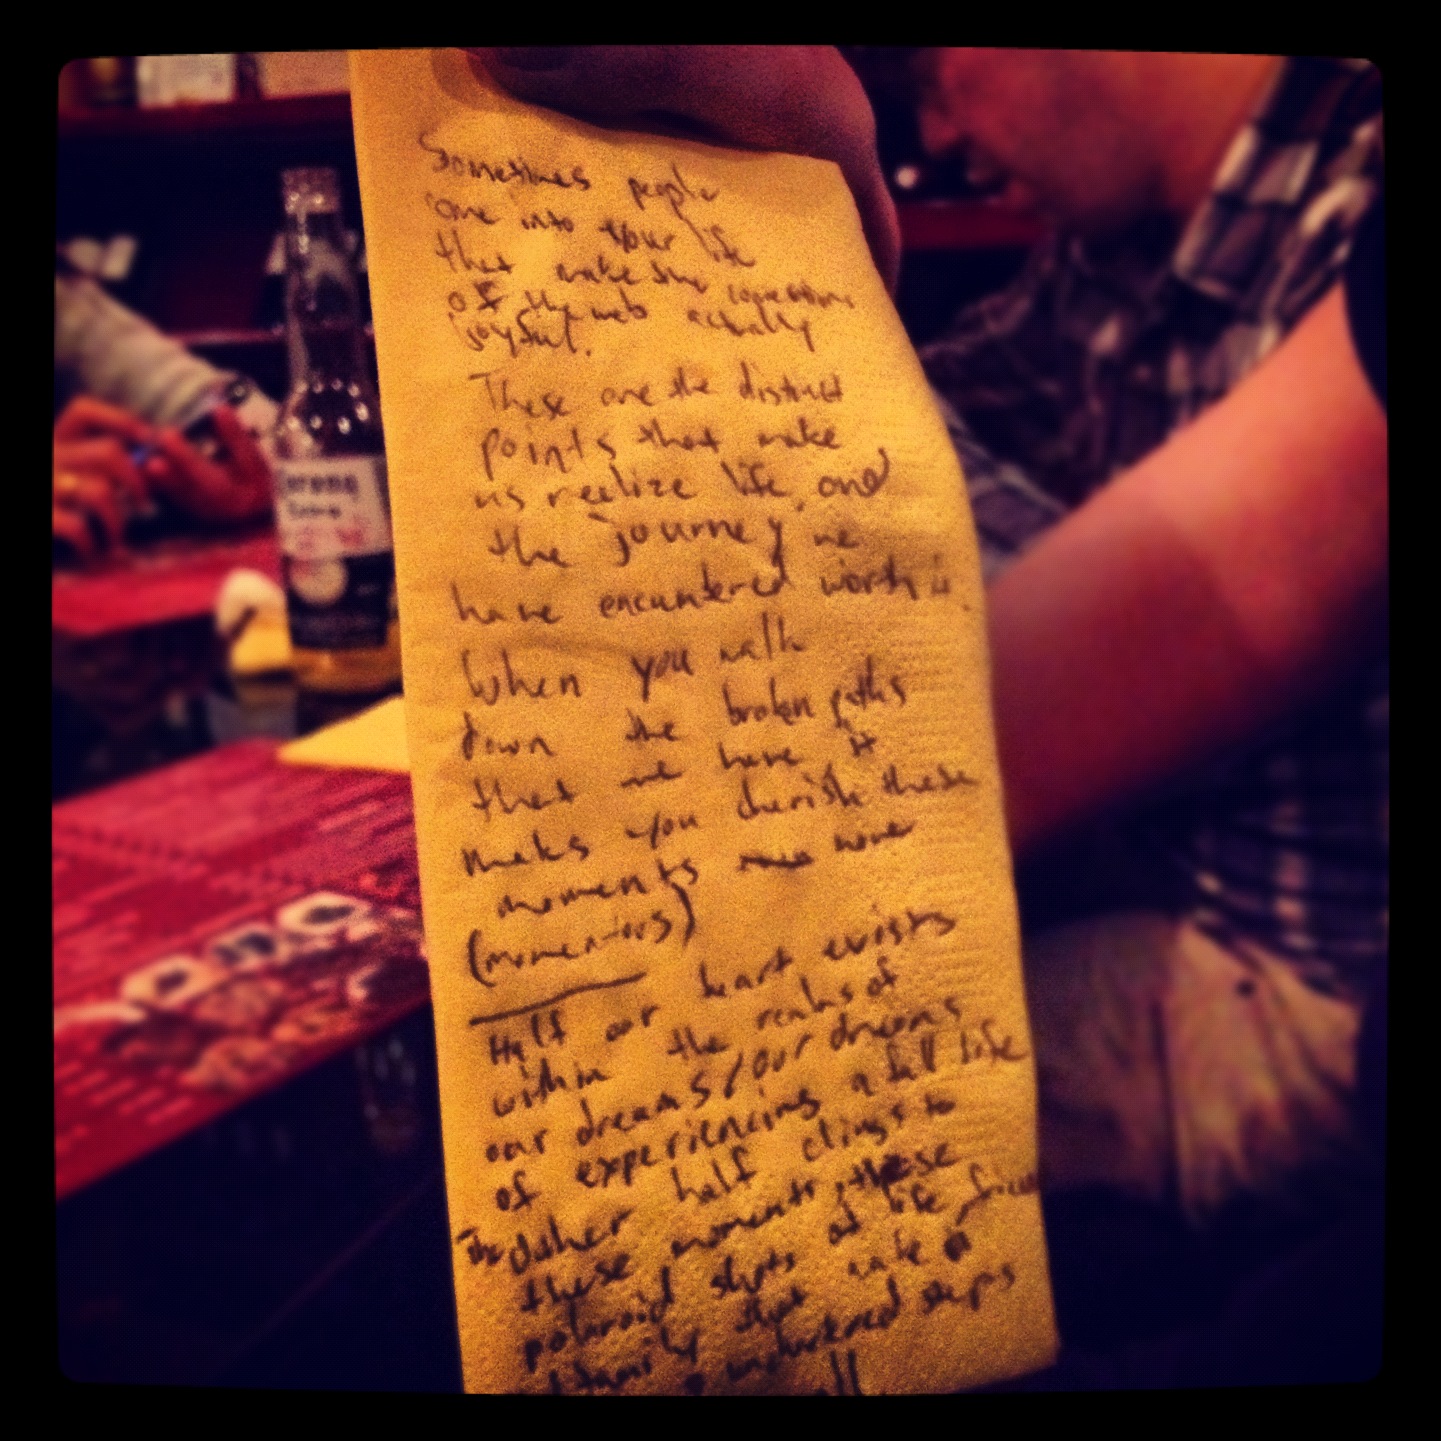 Sometimes people
come into your life
that make the
of the web actually
joyful.
These are the distinct
points that make
us realize life, and
the journey we
have encuntered worth it.
When you walk
down the broken paths
that we have it
makes you cherish these
moments more
(mementos)
Half our heart exists
within the realms of
our dreams/our dreams
of experiencing a full life
The other half clings to
these moments, these
polaroid shots of life, friends
family that make a
steps
all
Corona
Extra